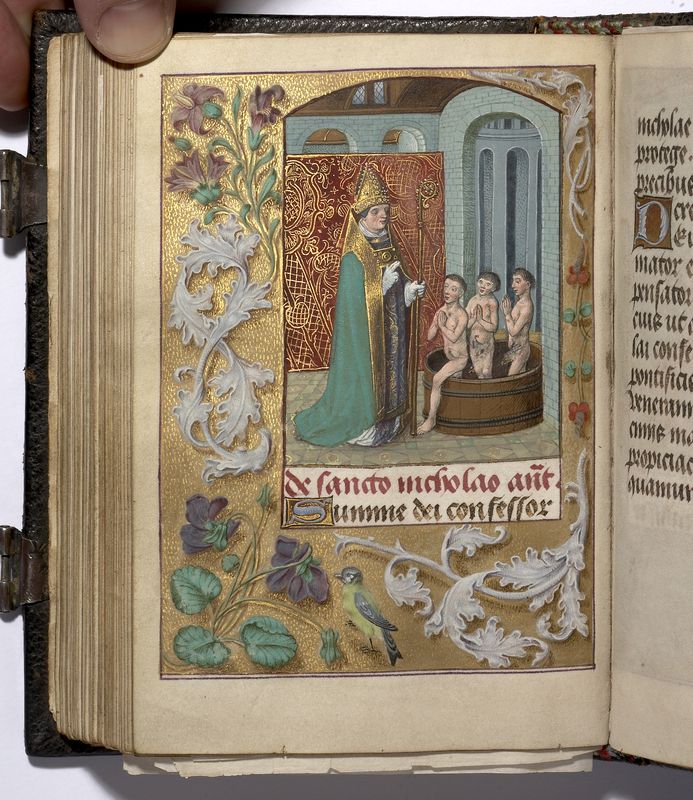 de sancto nicholao ant̄.
Summe dei confessor
nicholae
protege
precibus
D
mator
pensator
cuius ut
lai confe
pontificie
veneram
cuius
propiciac
quamur